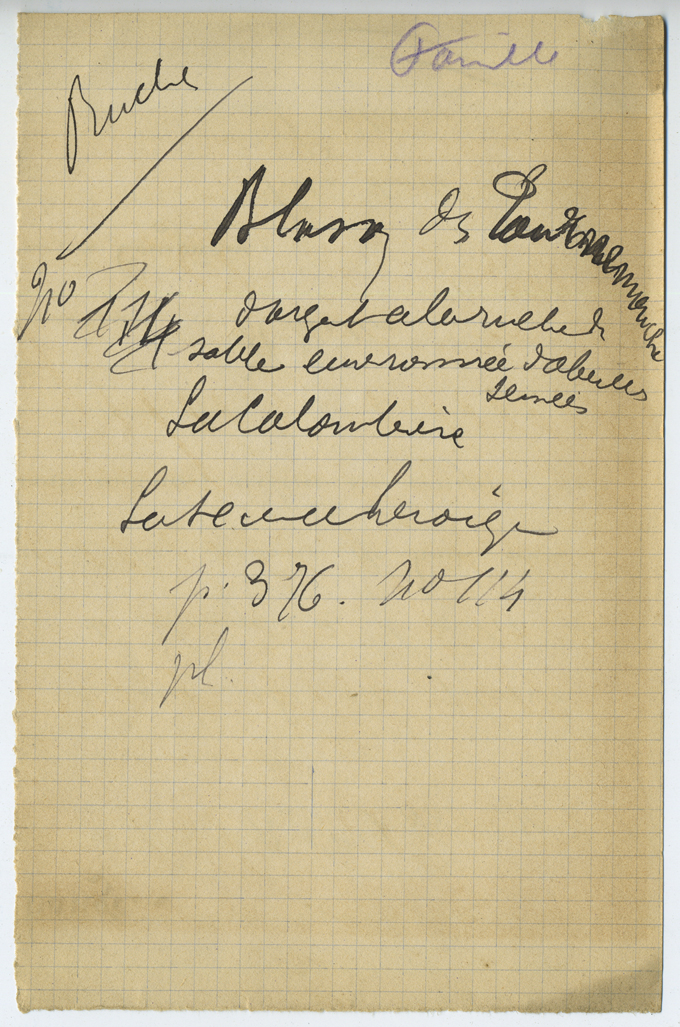 Famille
Ruche
Blason des
no d'argent a la ruche de
sable environnée d'abeilles
semées
La Colombière
La Science heroique
p. 376. no 114
pl.